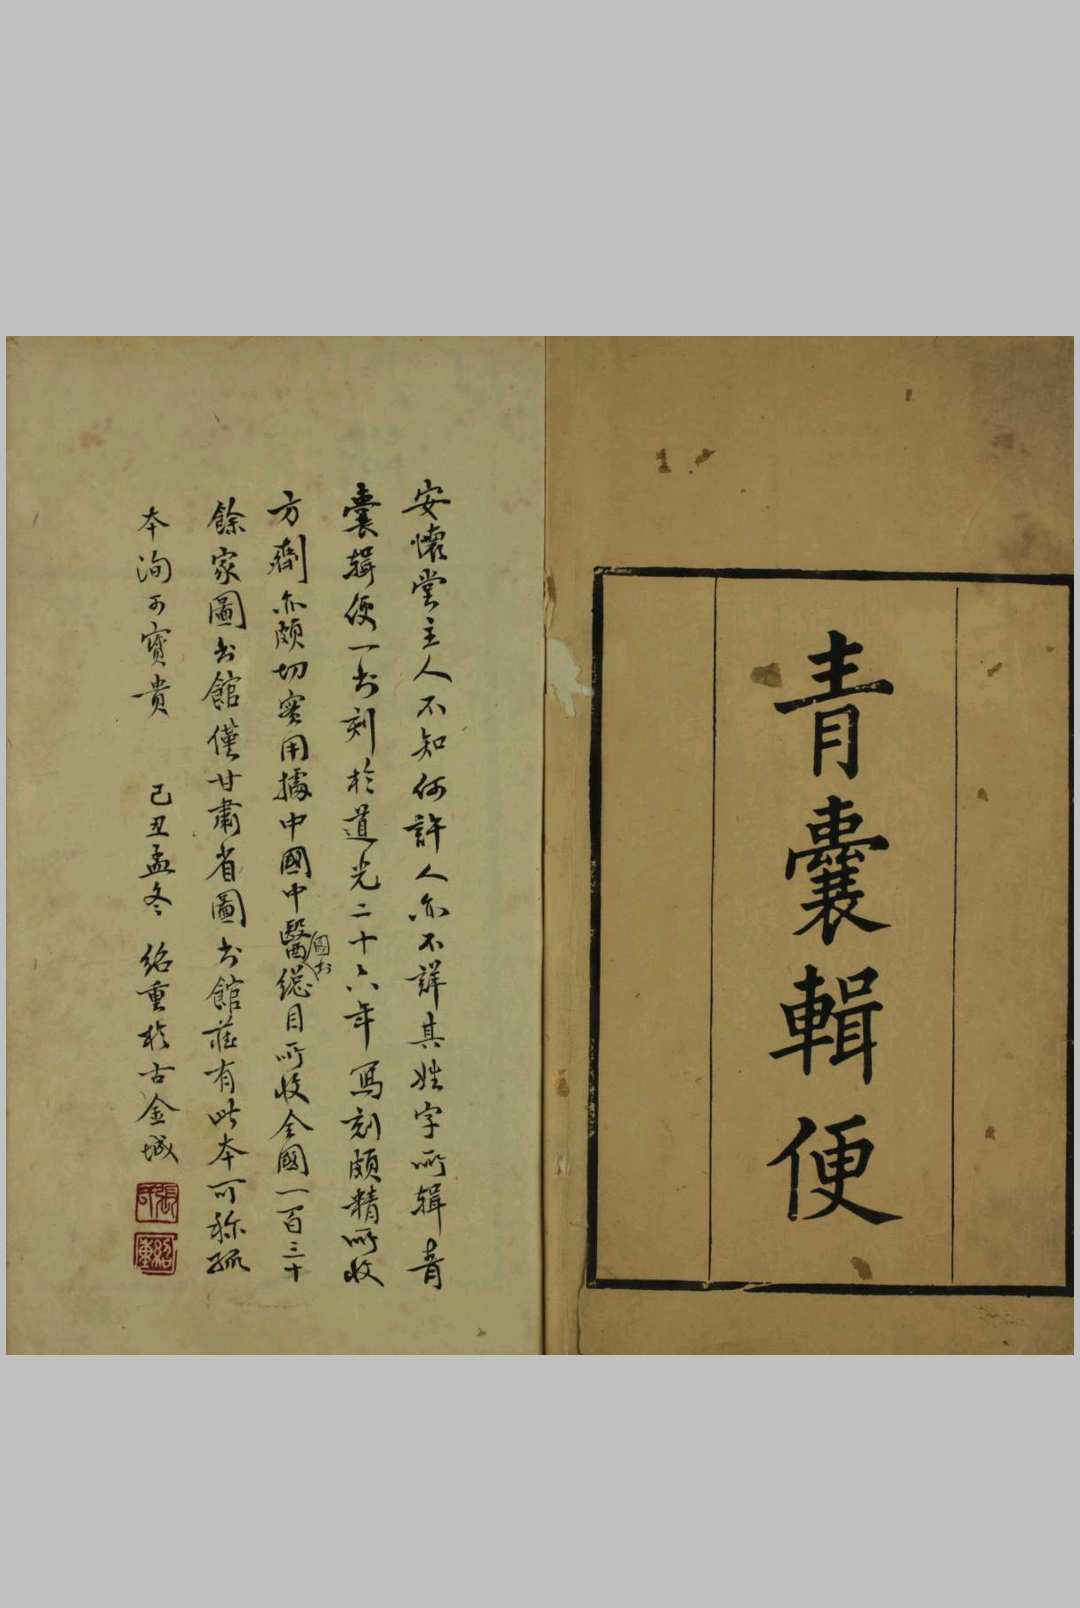 青囊輯便
安懷堂主人不知何許人亦不詳其姓字所輯青
囊輯便一书刻於道光二十六年寫刻頗精所收
方劑亦頗切實用據中國中醫圖书總目所收全國一百三十
餘家圖书館僅甘肅省圖书館藏有此本可称孤
本洵可寶貴 己丑孟冬 紹重於古金城
張
紹重